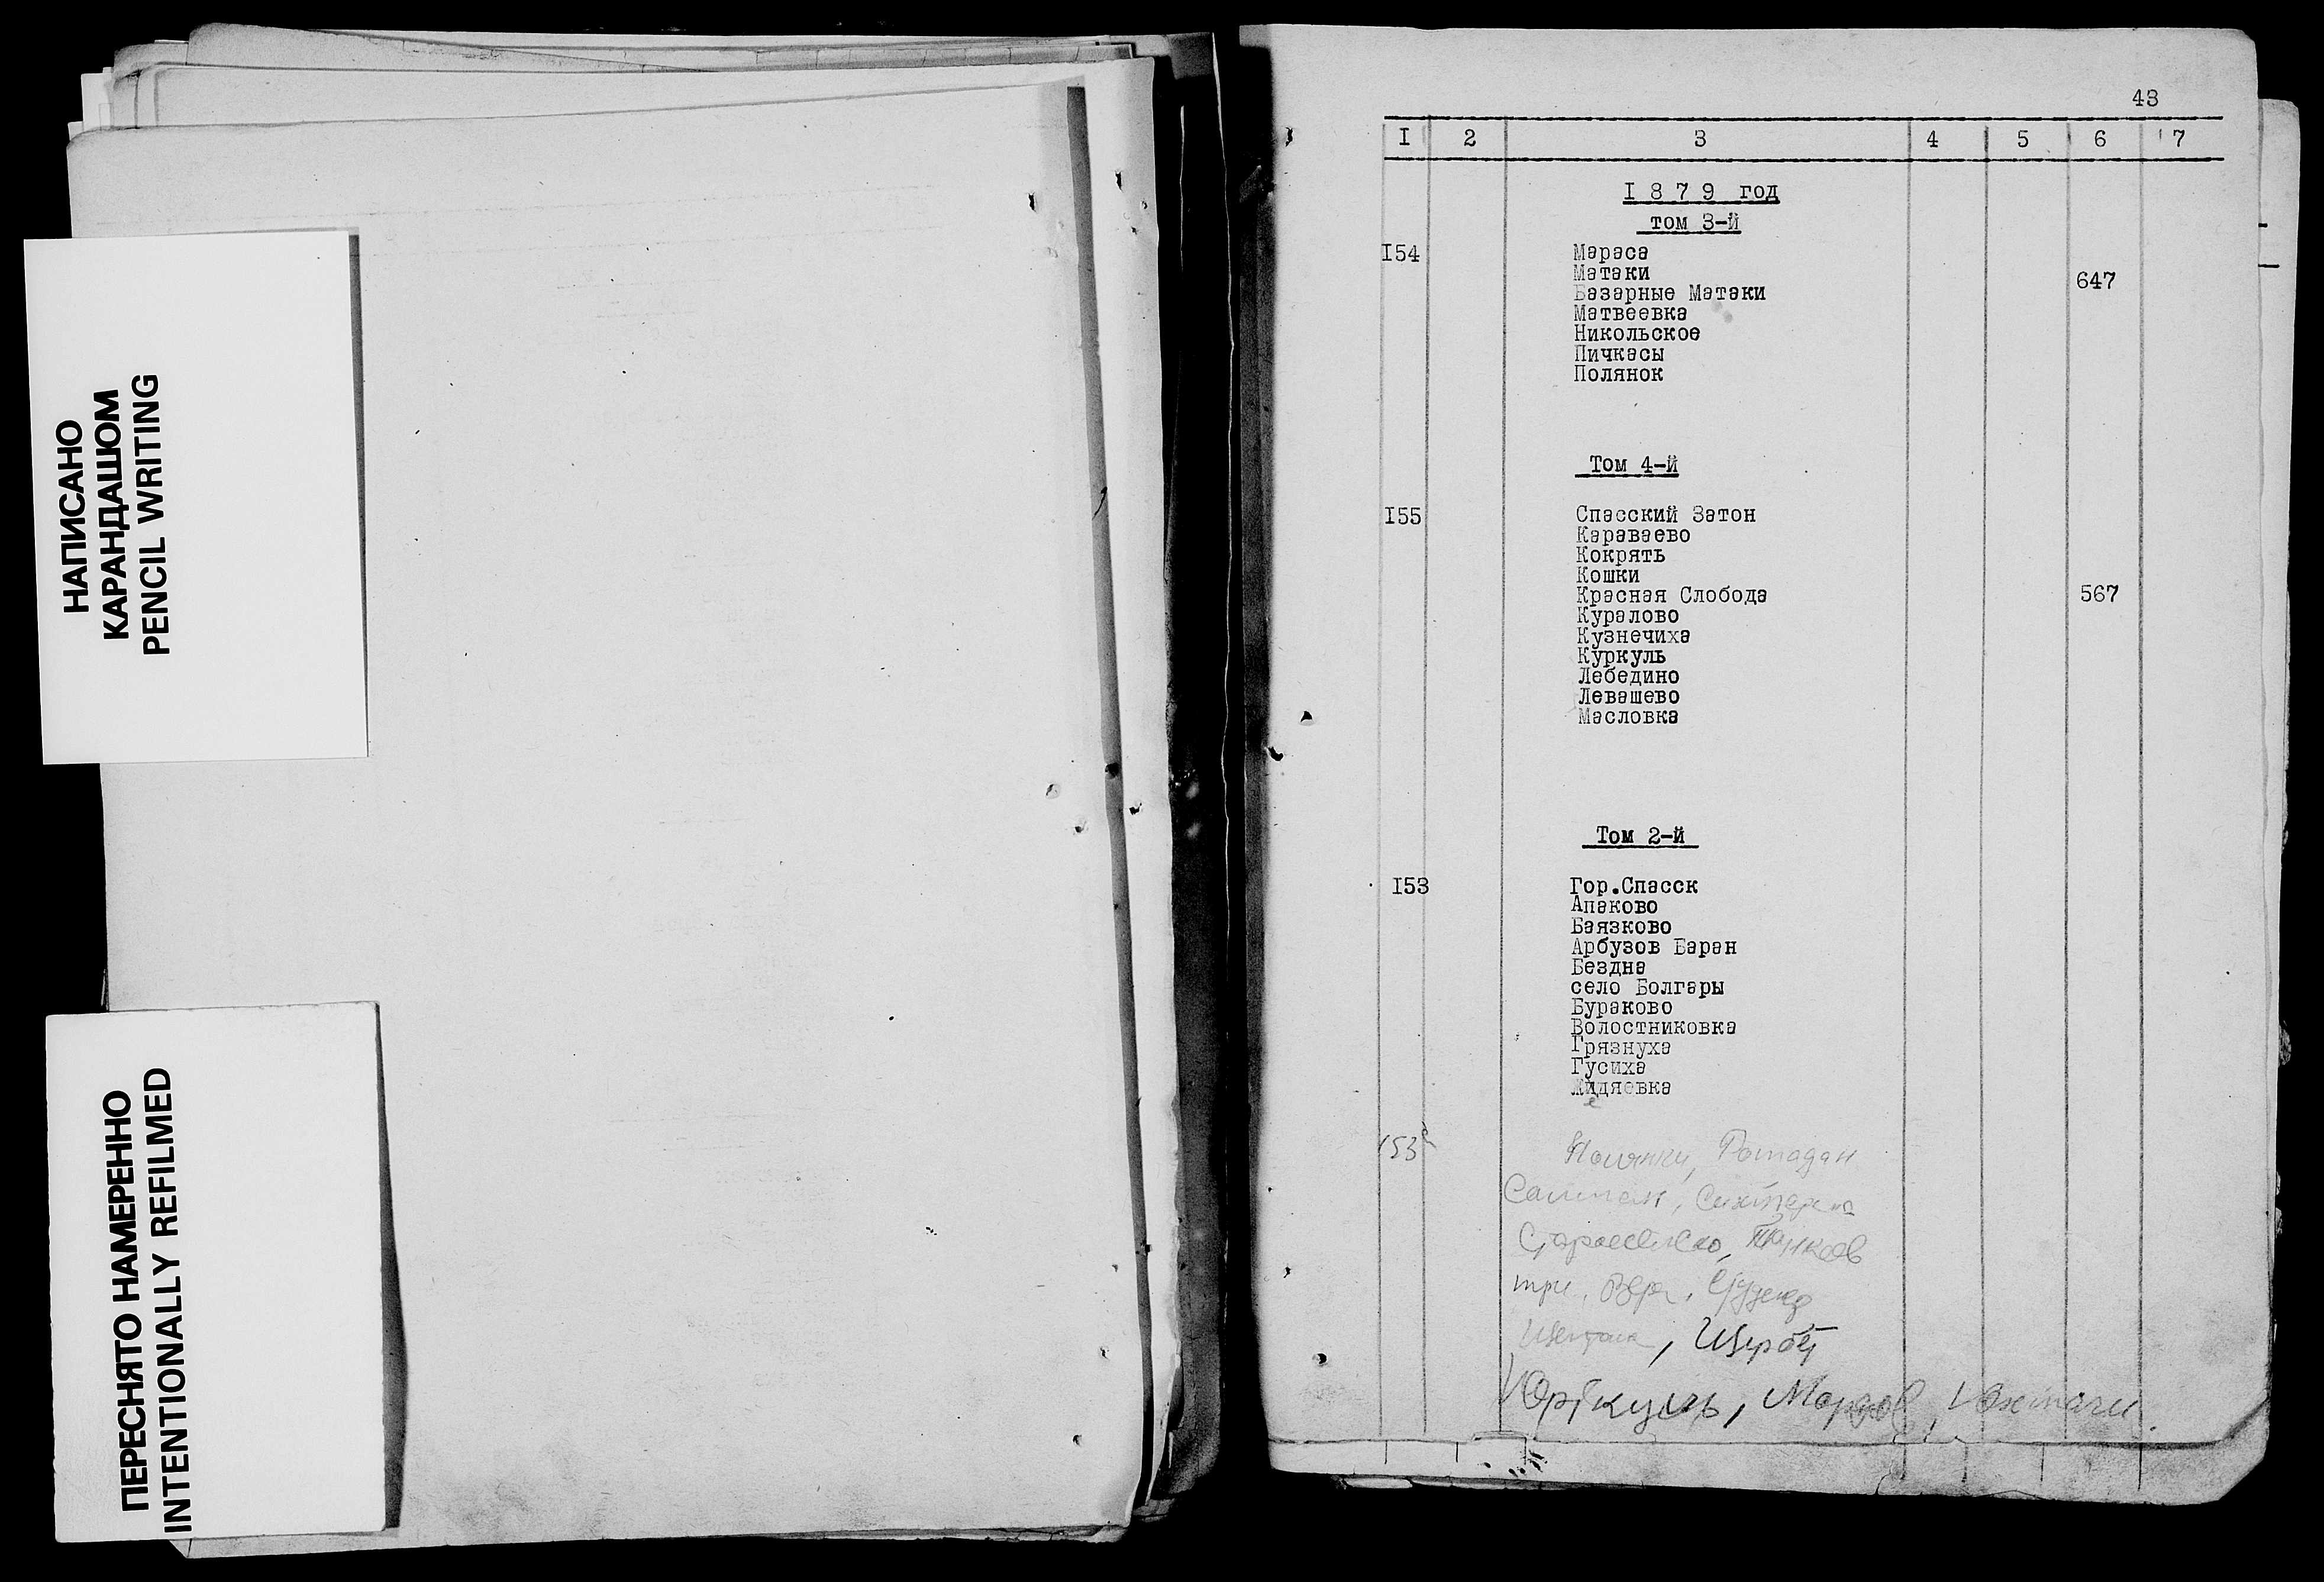 НАПИСАНО
КАРАНДАШОМ
PENCIL WRITING
ПЕРЕСНЯТО НАМЕРЕННО
INTENTIONALLY REFILMED
43
I 2 3 4 5 6 7
I 8 7 9 год
том 3-й
I54 Мараса
Матаки
647
Базарные Матаки
Матвеевка
Никольское
Пичкасы
Полянок
Том 4-й
I55 Спасский Затон
Караваево
Кокрять
Кошки
Красная Слобода 567
Куралово
Кузнечиха
Куркуль
Лебедино
Левашево
Масловка
Том 2-й
I53 Гор.Спасск
Апаково
Баязково
Арбузов Баран
Бездна
село Болгары
Бураково
Волостниковка
Грязнуха
Гусиха
Жидяевка
153а Полянки, Ромадан
Салман,
три,
, Щербеть
Юрткуль, Мордов, Юхмачи